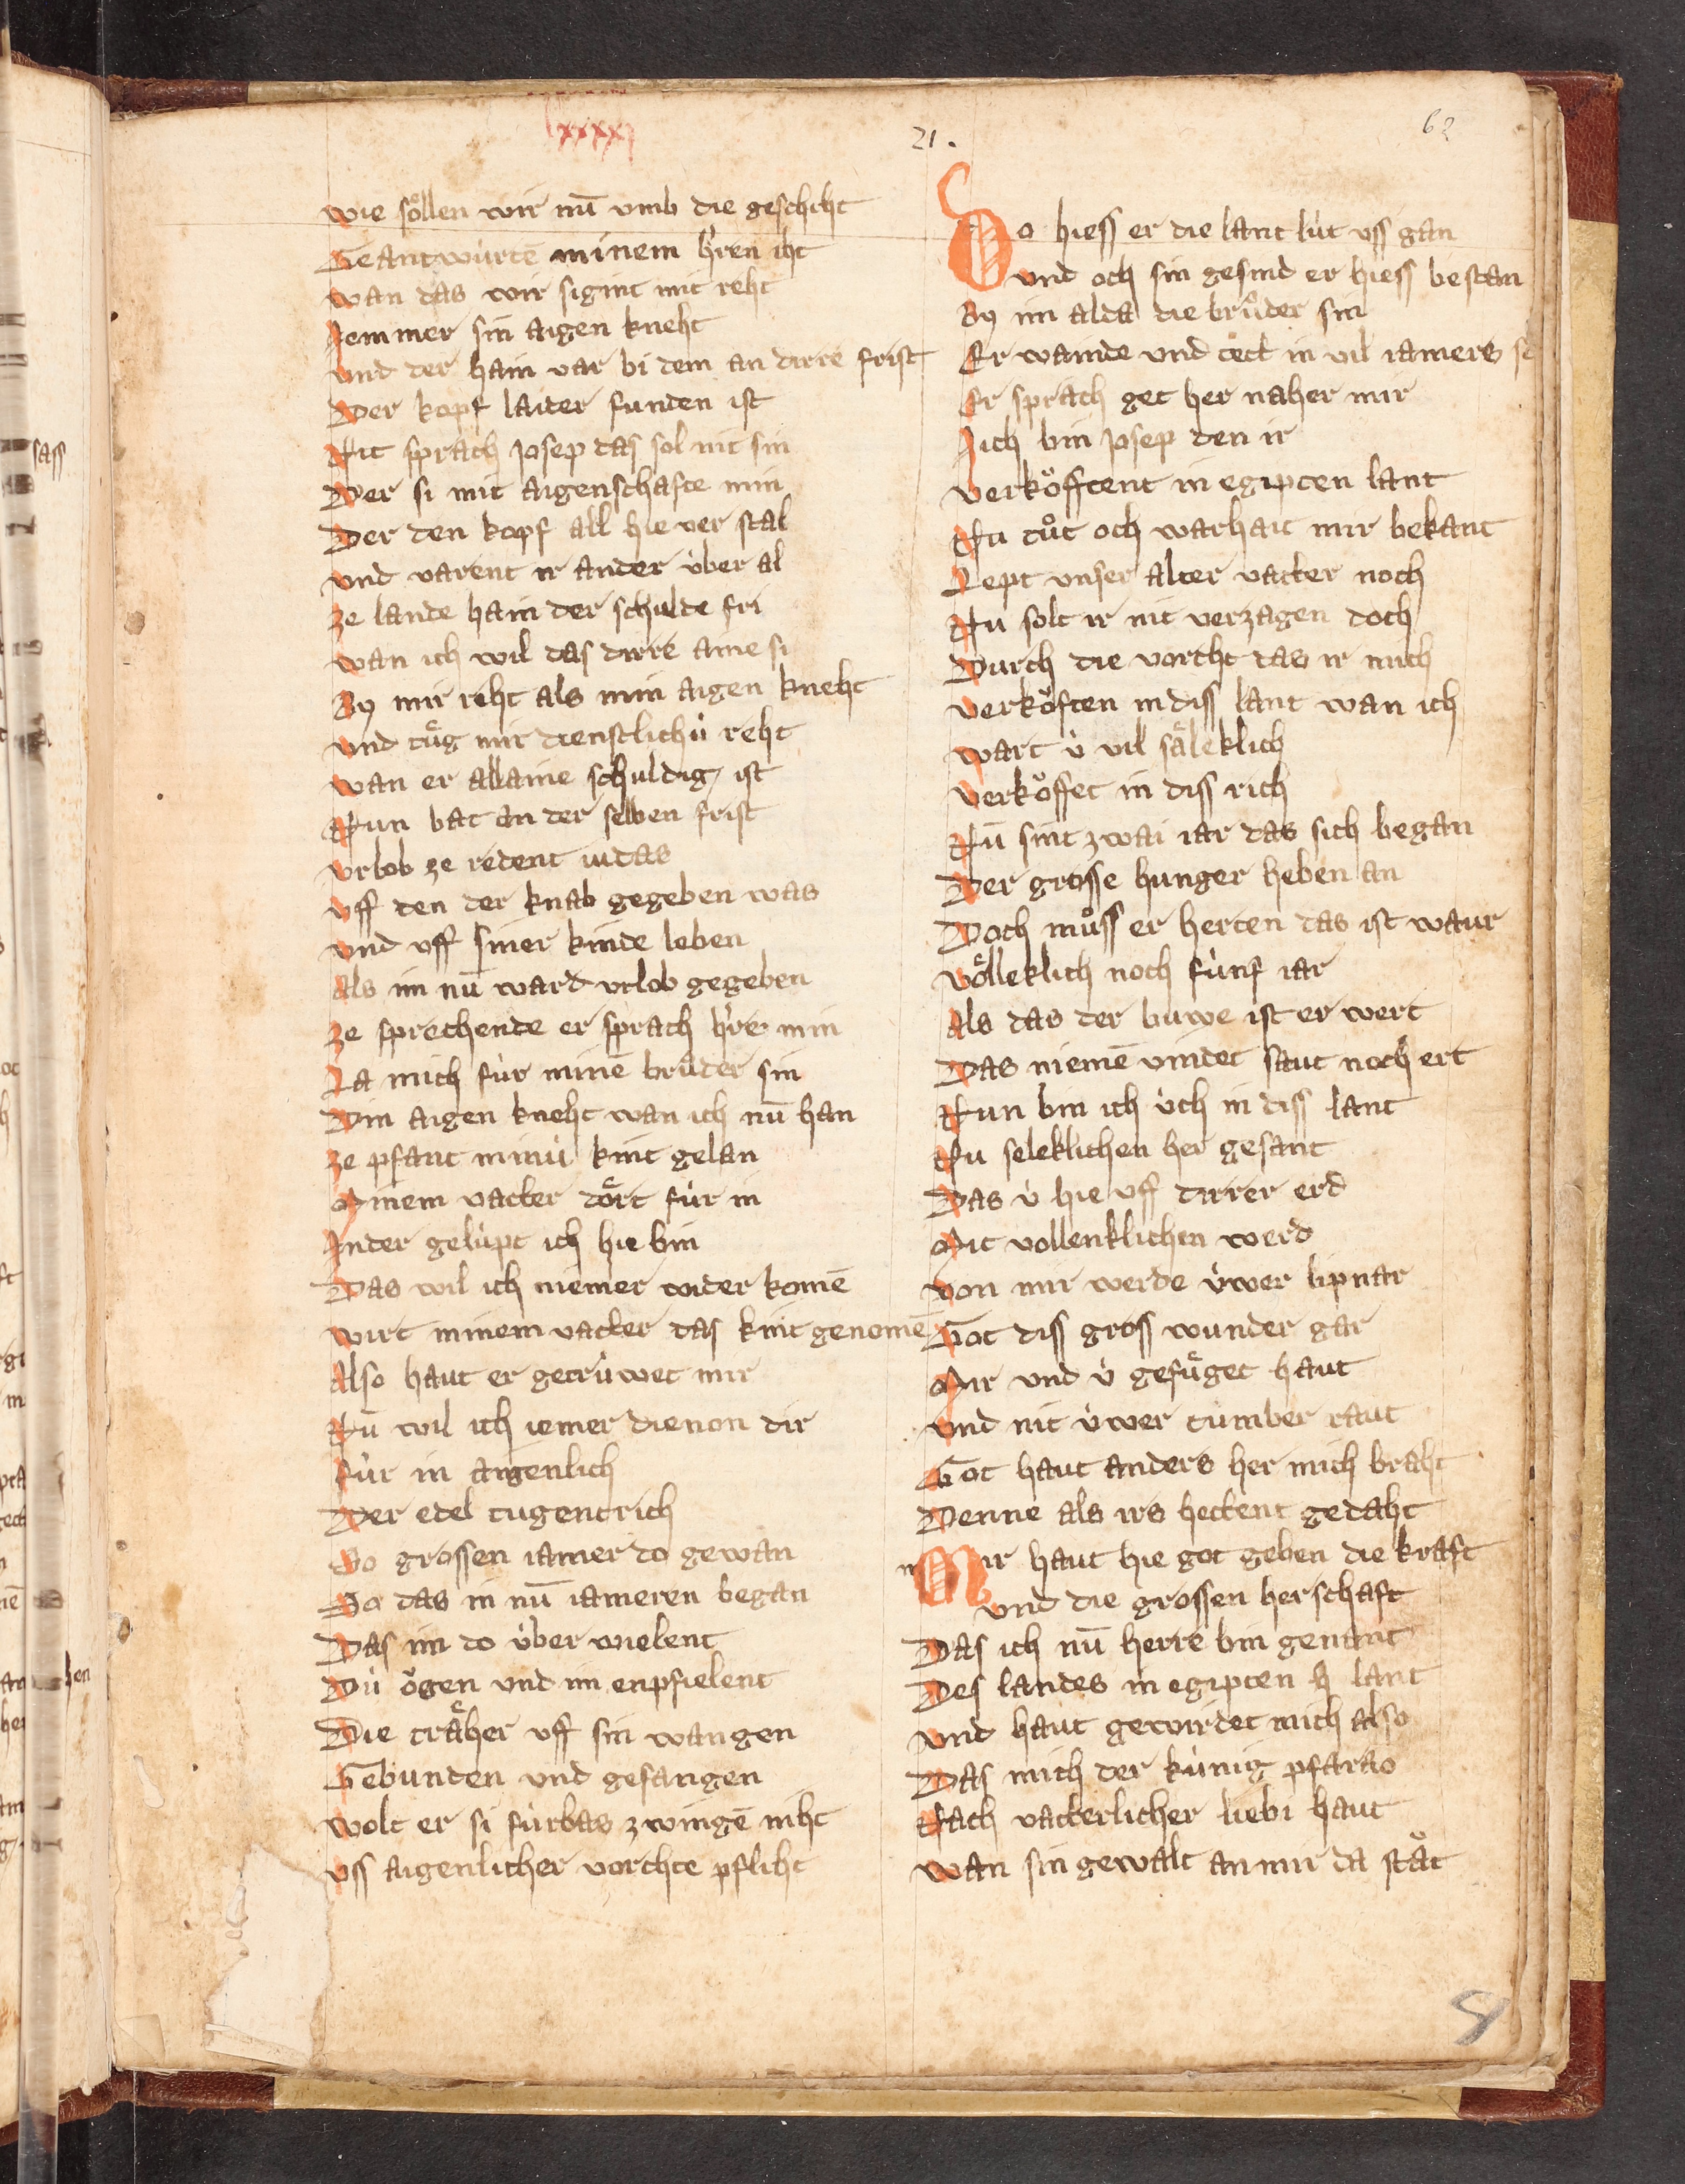 lxxxxj
21.
62
wie söllen wir nū vmb die geschiht
Geantwùrtē minem h'ren iht
wan das wir sigint mit reht
Jemmer sin aigen kneht
vnd der hain var bi dem an dirre frist
Der kopf laider funden ist
Nit sprach Josep das sol nit sin
Der si mit aigenschafte min
Der den kopf all hie ver stal
vnd varent ir ander ùber al
ze lande hain der schulde fri
wan ich wil das dirre aine si
By mir reht als min aigen kneht
vnd tuͤg mir dienstlichù reht
wan er allaine schuldig ist
Nun bat an der selben frist
vrlob ze redent iudas
vff den der knab gegeben was
vnd vff siner kinde leben
Als im nū ward vrlob gegeben
ze sprechende er sprach h're min
La mich fùr minē brůder sin
Din aigen kneht wan ich nū han
ze pfant minù kint gelan
Minem vatter doͤrt fùr in
Jn der gelùpt ich hie bin
Das wil ich niemer wider komē
wirt minem vatter das kint genomē
Also haut er getrùwet mir
Nū wil ich iemer dienon dir
fùr in aigenlich
Der edel tugentrich
So grossen iamer do gewan
Do das in nū iameren began
Das im do ùber wielent
Dù oͤgen vnd im enpfielent
Die traͤher vff sin wangen
Gebunden vnd gefangen
wolt er si fùrbas zwingē niht
vss aigenlicher vorchte pfliht
Do hiess er die lant lùt vss gan
vnd och sin gesind er hiess bestan
By im alda die brůder sin
Er wainde vnd tett in vil iamers
Er sprach get her naher mir
Jich bin Josep den ir
verkoͤfftent in egipten lant
Nu tůt och warhait mir bekant
Lept vnser alter vatter noch
Nu solt ir nit verzagen doch
Durch die vorcht das ir mich
verkoͤften in diss lant wan ich
wart ù vil saͤleklich
verkoͤffet in diss rich
Nū sint zwai iar das sich began
Der grosse hunger heben an
Doch můss er herten das ist waur
voͤlleklich noch fùnf iar
Als das der buwe ist er wert
Das niemē vindet saut noch ert
Nun bin ich ùch in diss lant
Nu seleklichen her gesant
Das ù hie vff dirrer erd
Mit vollenklichen werd
von mir werde ùwer lipnar
Got diss gross wunder gar
Mir vnd ù gefuͤget haut
vnd nit ùwer tùmber raut
Got haut anders her mich braht
Denne als irs hettent gedaht
Mir haut hie got geben die kraft
vnd die grossen herschaft
Das ich nū herre bin genant
Des landes in egipten lant
vnd haut gewirdet mich also
Das mich der kùnig pfarao
Nach vatterlicher liebi haut
wan sin gewalt an mir da staͤt